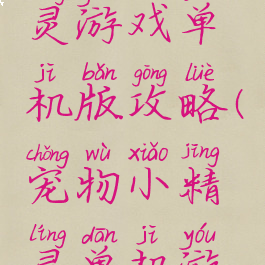 灵游戏单
jī bǎn gōng lüè
机版攻略(
chǒng wù xiǎo jīng
宠物小精
líng dān jī yóu
灵单机游